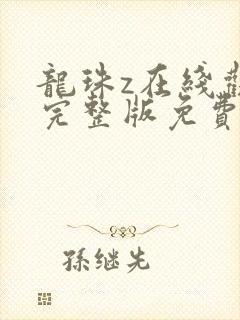 龍珠z在綫觀
完整版免費
孫继先